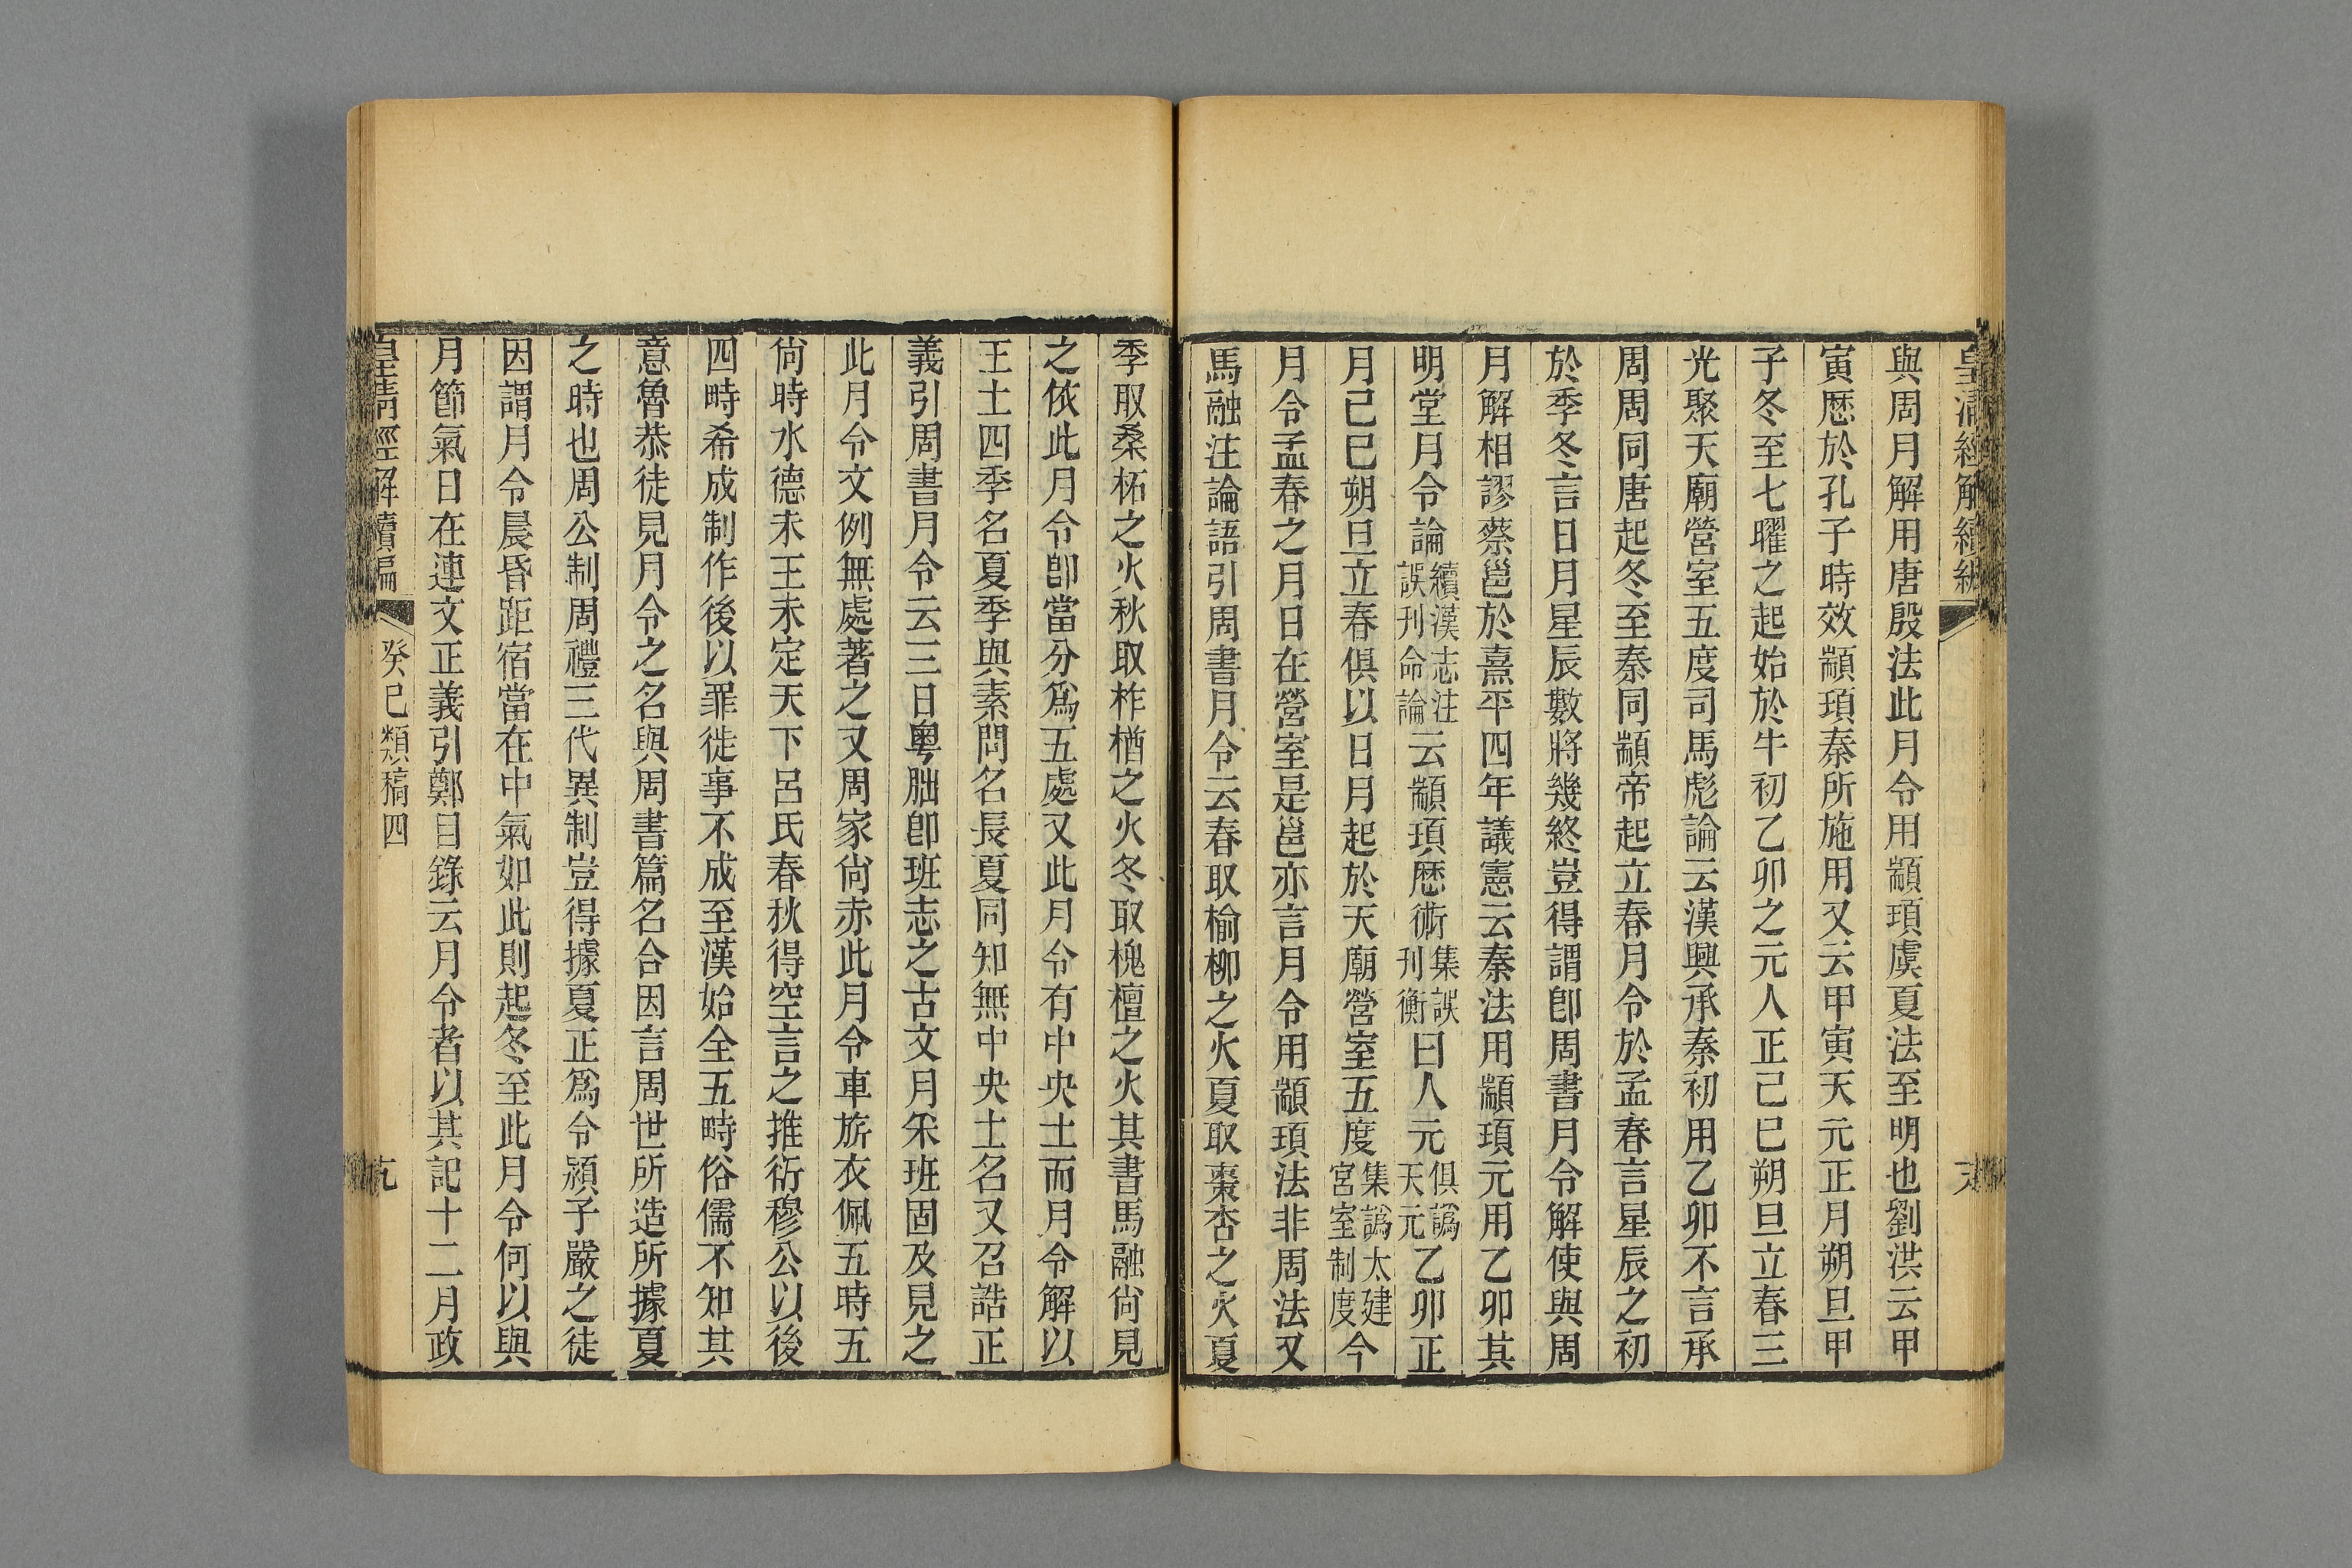 皇清經解續編
與周月解用唐殷法此月令用顓頊虞夏法至明也劉洪云甲
寅厯於孔子時效顓頊秦所施用又云甲寅天元正月朔旦甲
子冬至七曜之起始於牛初乙卯之元人正己巳朔旦立春三
光聚天廟營室五度司馬彪論云漢興承秦初用乙卯不言承
周周同唐起冬至秦同顓帝起立春月令於孟春言星辰之初
於季冬言日月星辰數將幾終豈得謂卽周書月令解使與周
月解相謬蔡邕於熹平四年議憲云秦法用顓頊元用乙卯其
明堂月令論續漢志注誤刊命論云顓頊厯術集誤刊衡曰人元俱譌天元乙卯正
月己巳朔旦立春俱以日月起於天廟營室五度集譌太建宮室制度今
月令孟春之月日在營室是邕亦言月令用顓頊法非周法又
馬融注論語引周書月令云春取榆柳之火夏取棗杏之火夏
季取桑柘之火秋取柞楢之火冬取槐檀之火其書馬融尙見
之依此月令卽當分爲五處又此月令有中央土而月令解以
王土四季名夏季與素問名長夏同知無中央土名又召誥正
義引周書月令云三日粵朏卽班志之古文月釆班固及見之
此月令文例無處著之又周家尙赤此月令車旂衣佩五時五
尙時水德未王未定天下呂氏春秋得空言之推衍穆公以後
四畤希成制作後以罪徙事不成至漢始全五畤俗儒不知其
意魯恭徒見月令之名與周書篇名合因言周世所造所據夏
之時也周公制周禮三代異制豈得據夏正爲令潁子嚴之徒
因謂月令晨昏距宿當在中氣如此則起冬至此月令何以與
月節氣日在連文正義引鄭目錄云月令者以其記十二月政
皇清經解續編
癸巳類稿四